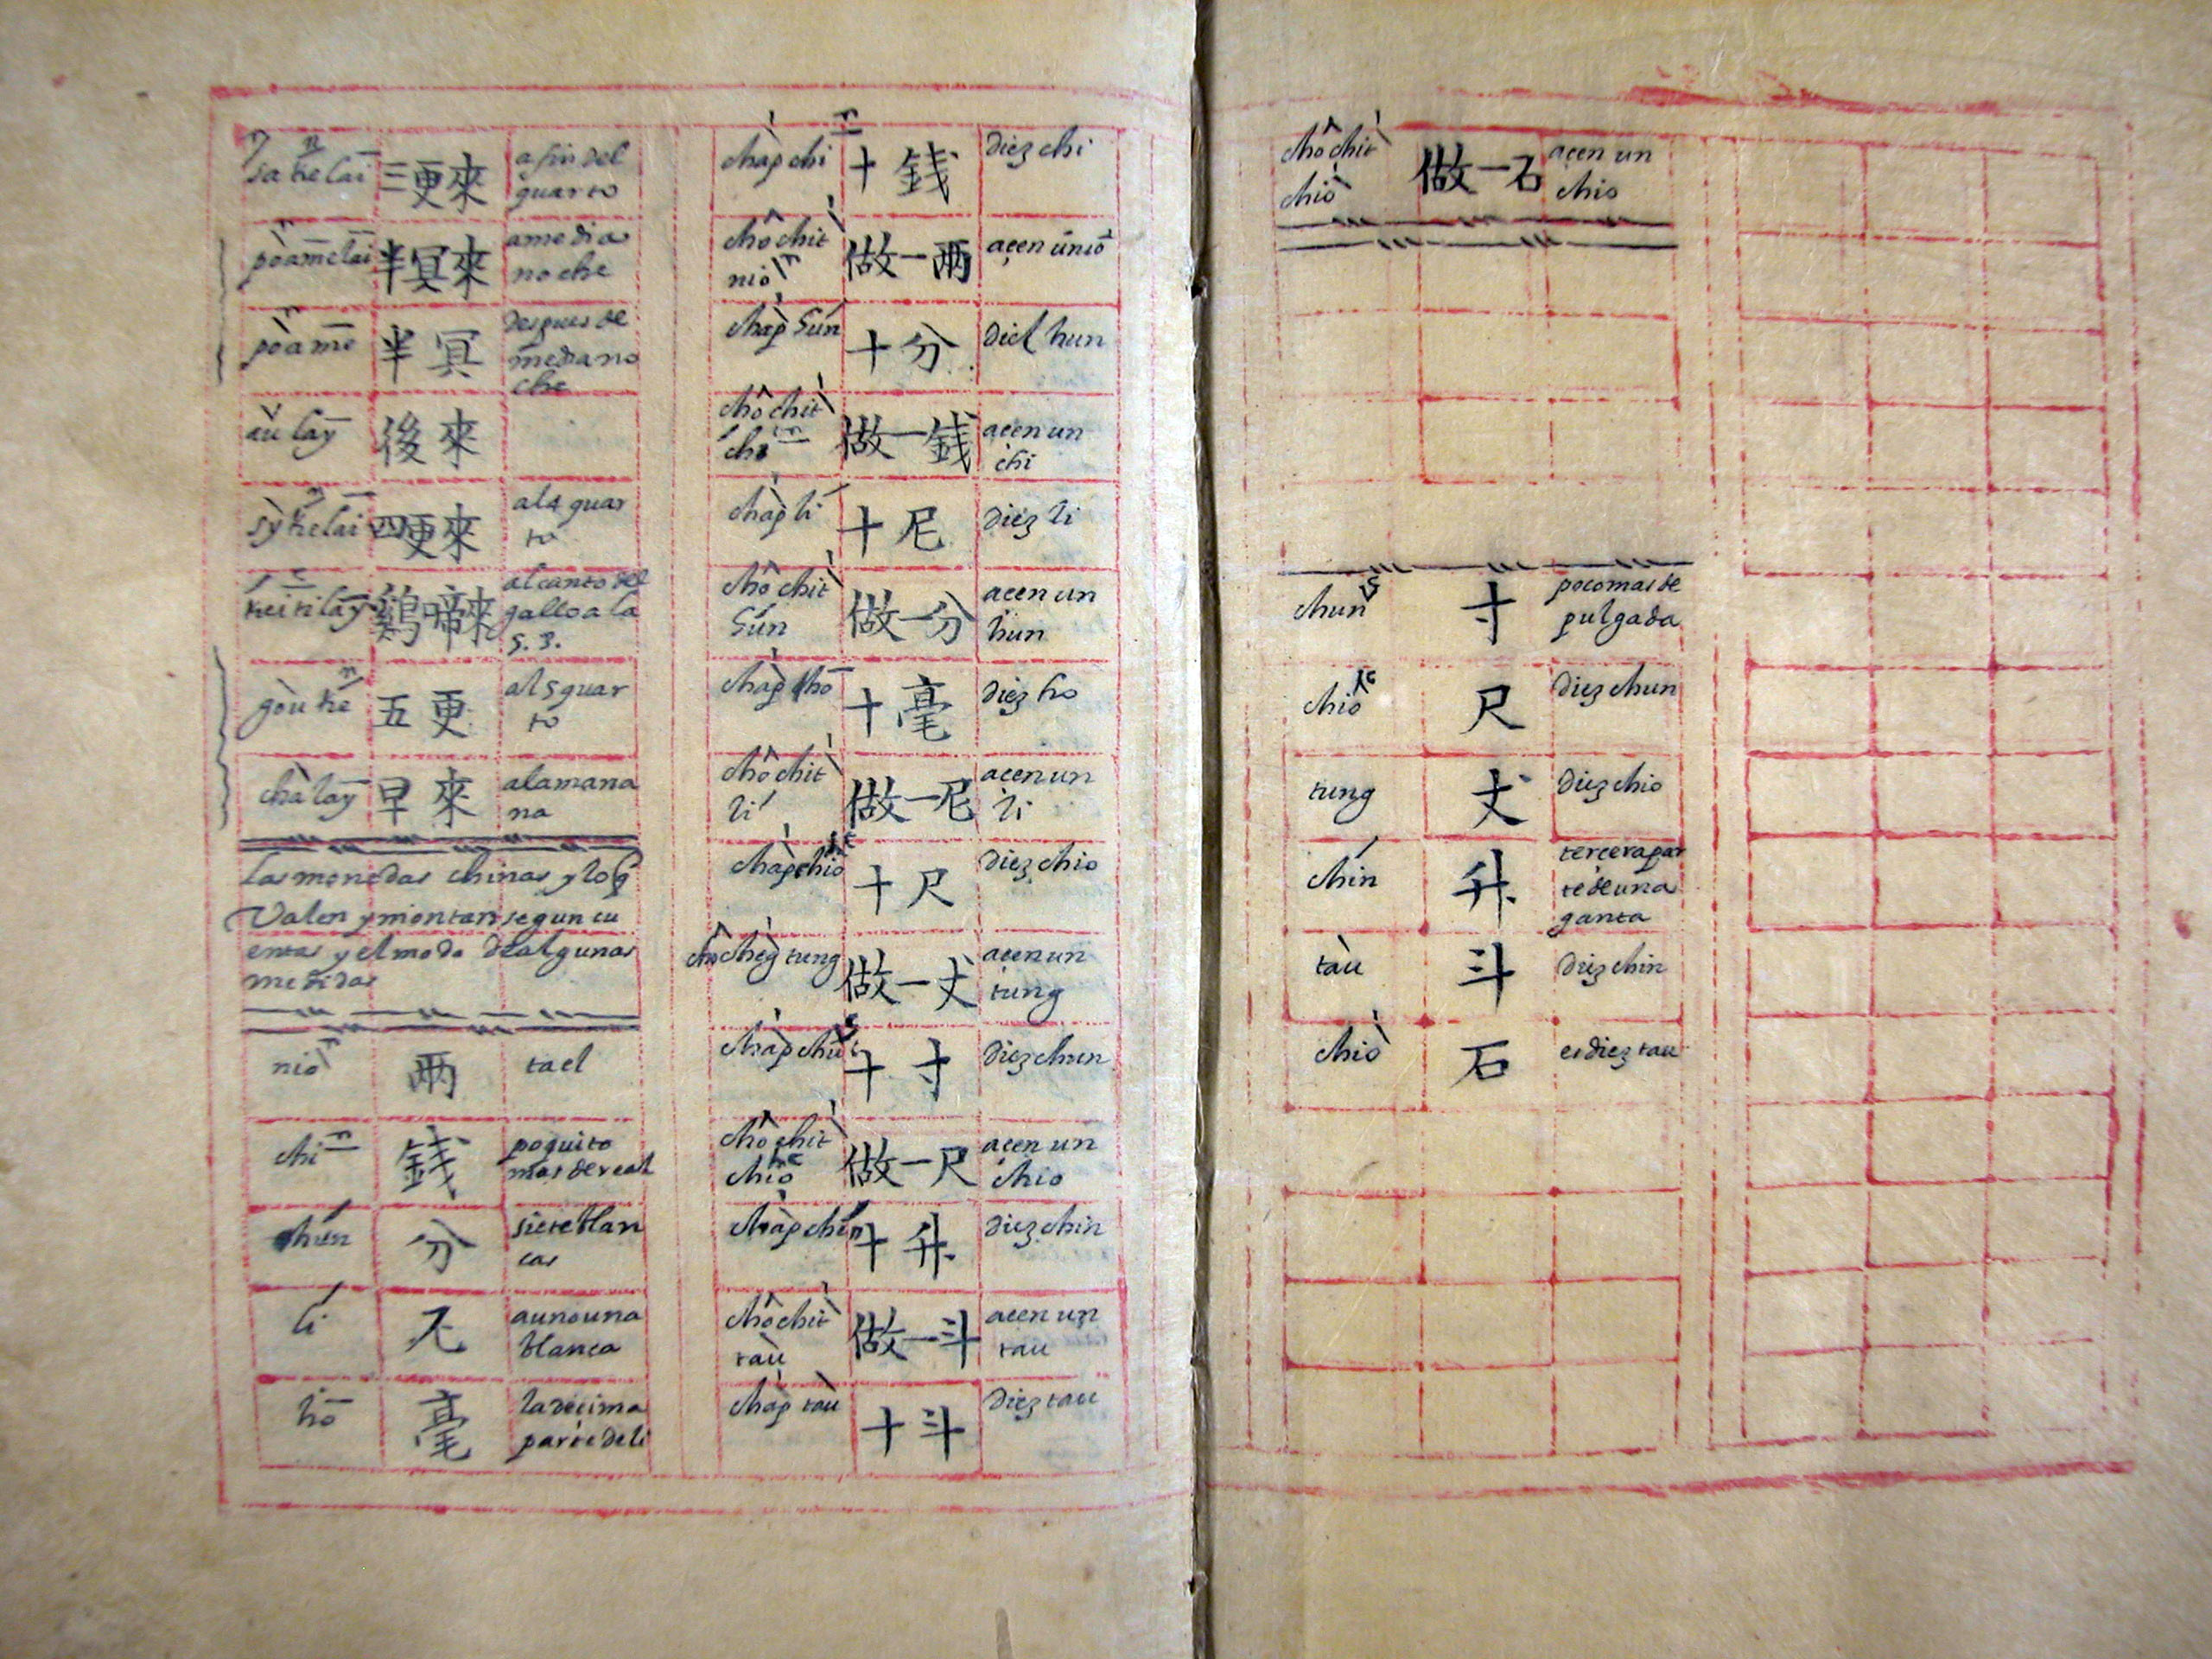 sa ke lai 三更來 a fin del
quarto
pòa mē lai 半冥來 a media
noche
pòa mē 半冥 despues de
media no
che
àu laȳ 後來
sỳ ke lai 四更來 al 4 quar
to
kei ti laȳ 鷄啼來 al canto del
gallo a la
s. 3.
gòu ke 五更 al 5 quar
to
chà laȳ 早來 a la mana
na
las monedas chinas y lo q̃
valen y montan segun cu
entas y el modo de algunas
medidas
niò 兩 tael
chi 錢 poquito
mas de real
hún 分 siete blan
cas
lî 尺 aun o una
blanca
hō 毫 la decima
parte de li
cha̍p chi 十錢 diez chi
chô chit 做一兩 açen ũ nio
niò
cha̍p hún 十分 diez hun
chô chit 做一錢 açen un
chi chi
cha̍p lí 十尼 diez li
chô chit 做一分 açen un
hún hun
cha̍p hō 十毫 diez ho
chô chit 做一尼 açen un
lí li
cha̍p chio 十尺 diez chio
chô chèg tung 做一丈 açen un
tung
cha̍p chũ 十寸 diez chun
chô chit 做一尺 açen un
chio chio
cha̍p chín 十升 diez chin
chô chit 做一斗 açen un
tàu tau
cha̍p tàu 十斗 diez tau
chô chit 做一石 açen un
chiò chio
chun 寸 poco mas de
pulgada
chio 尺 diez chun
tung 丈 diez chio
chín 升 tercera par
te de una
ganta
tàu 斗 diez chin
chiò 石 es diez tau